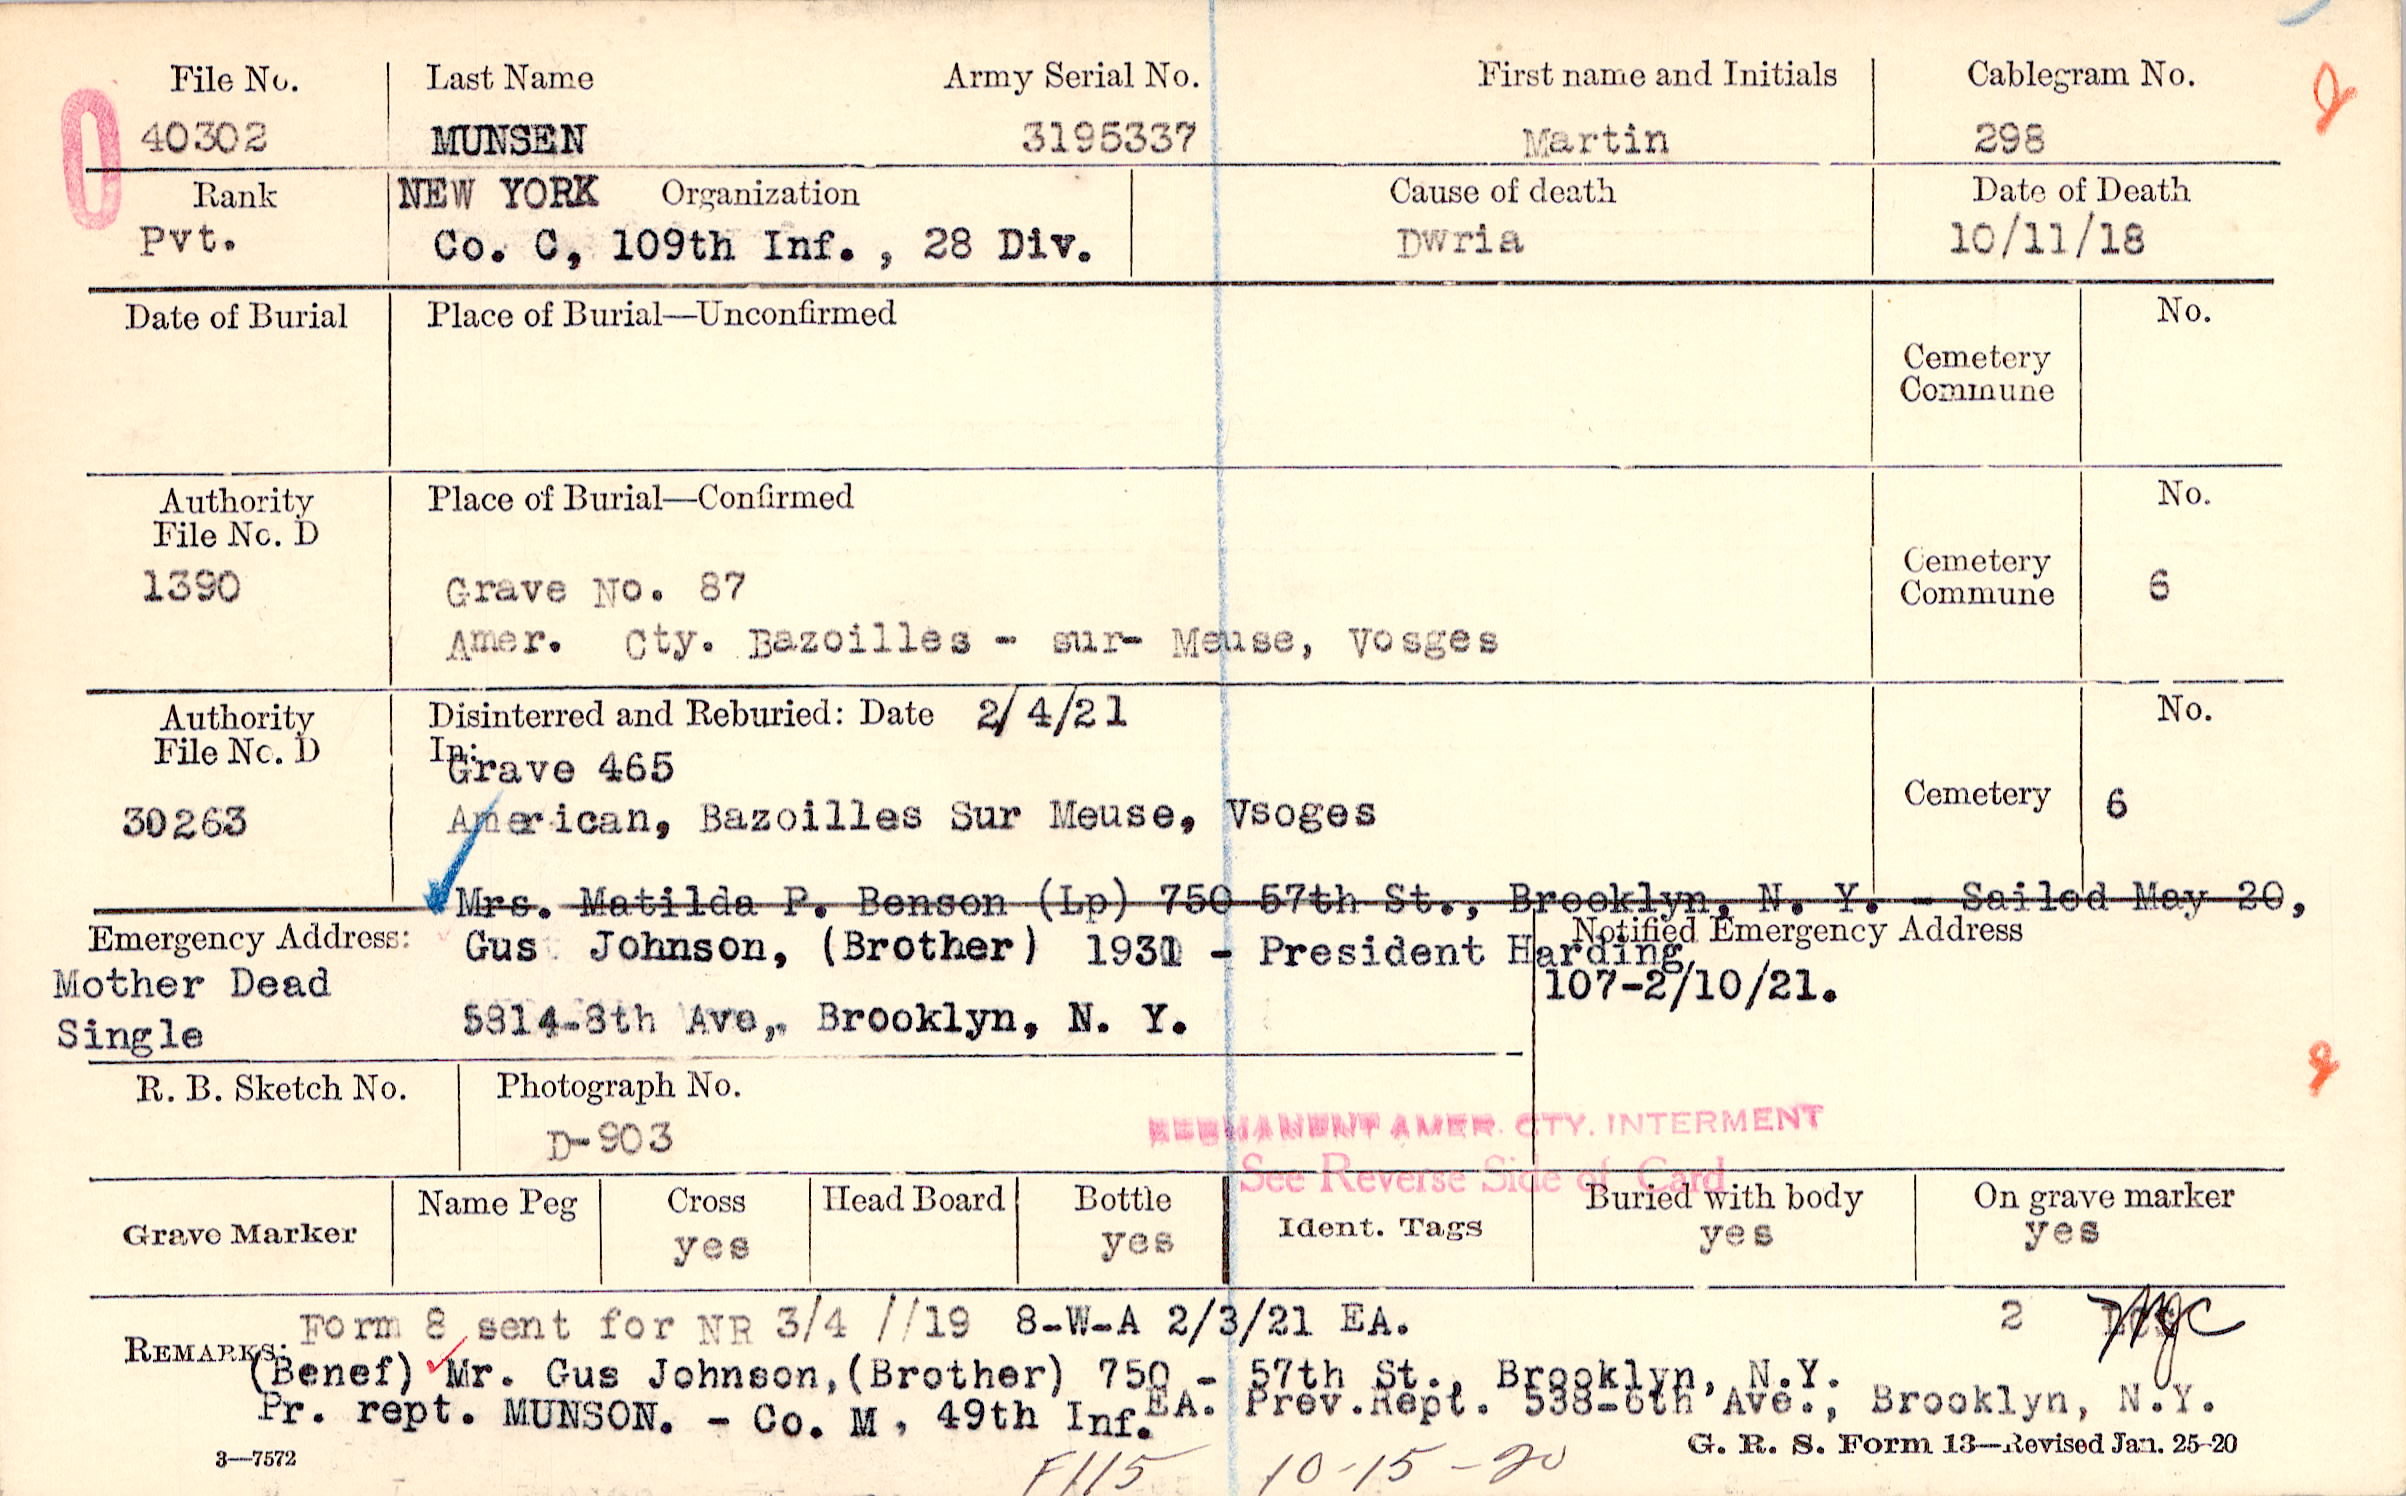 File No. Last Name Army Serial No. First name and Initials Cablegram No.
40302 MUNSEN 3195337 Martin 298
Rank NEW YORK Organization Cause of death Date of Death
Pvt. Co. C, 109th Inf. , 28 Div. Dwria 10/11/18
Date of Burial Place of Burial—Unconfirmed No.
Cemetery
Commune
Authority Place of Burial—Confirmed No.
File No. D
1390 Grave No. 87 Cemetery Commune 6
Amer. Cty. Bazoilles - sur- Meuse, Vosges
Authority Disinterred and Reburied: Date 2/4/21 No.
File No. D In:
Grave 465
30263 American, Bazoilles Sur Meuse, Vsoges Cemetery 6
Mrs. Matilda P. Benson (Lp) 750 57th St., Brooklyn, N. Y. - Sailed May 20,
Emergency Address: Gus Johnson, (Brother) 1931 - President Harding Notified Emergency Address
Mother Dead 107-2/10/21.
Single 5814-8th Ave,. Brooklyn, N. Y.
R. B. Sketch No. Photograph No.
D-903
PERMANENT AMER. CTY. INTERMENT
See Reverse Side of Card
Grave Marker Name Peg Cross Head Board Bottle Ident. Tags Buried with body On grave marker
yes yes yes yes
Form 8 sent for NR 3/4 //19 8-W-A 2/3/21 EA. 2
REMARKS:
(Benef) Mr. Gus Johnson,(Brother) 750 - 57th St., Brooklyn, N.Y.
Pr. rept. MUNSON. - Co. M , 49th Inf. EA. Prev.Rept. 538-6th Ave., Brooklyn, N.Y.
3—7572 G. R. S. Form 13—Revised Jan. 25-20
F115 10-15-20